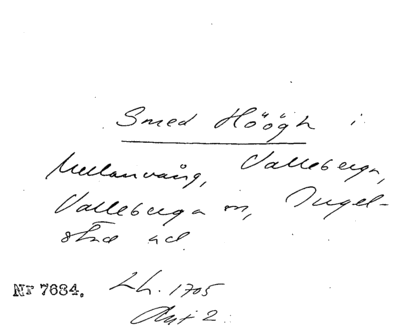 Smed Höögh i
Mellanvång, Valleberga,
Valleberga sn, Ingel-
stad hd.
Nr 7684. Lh. 1705
Ant 2.